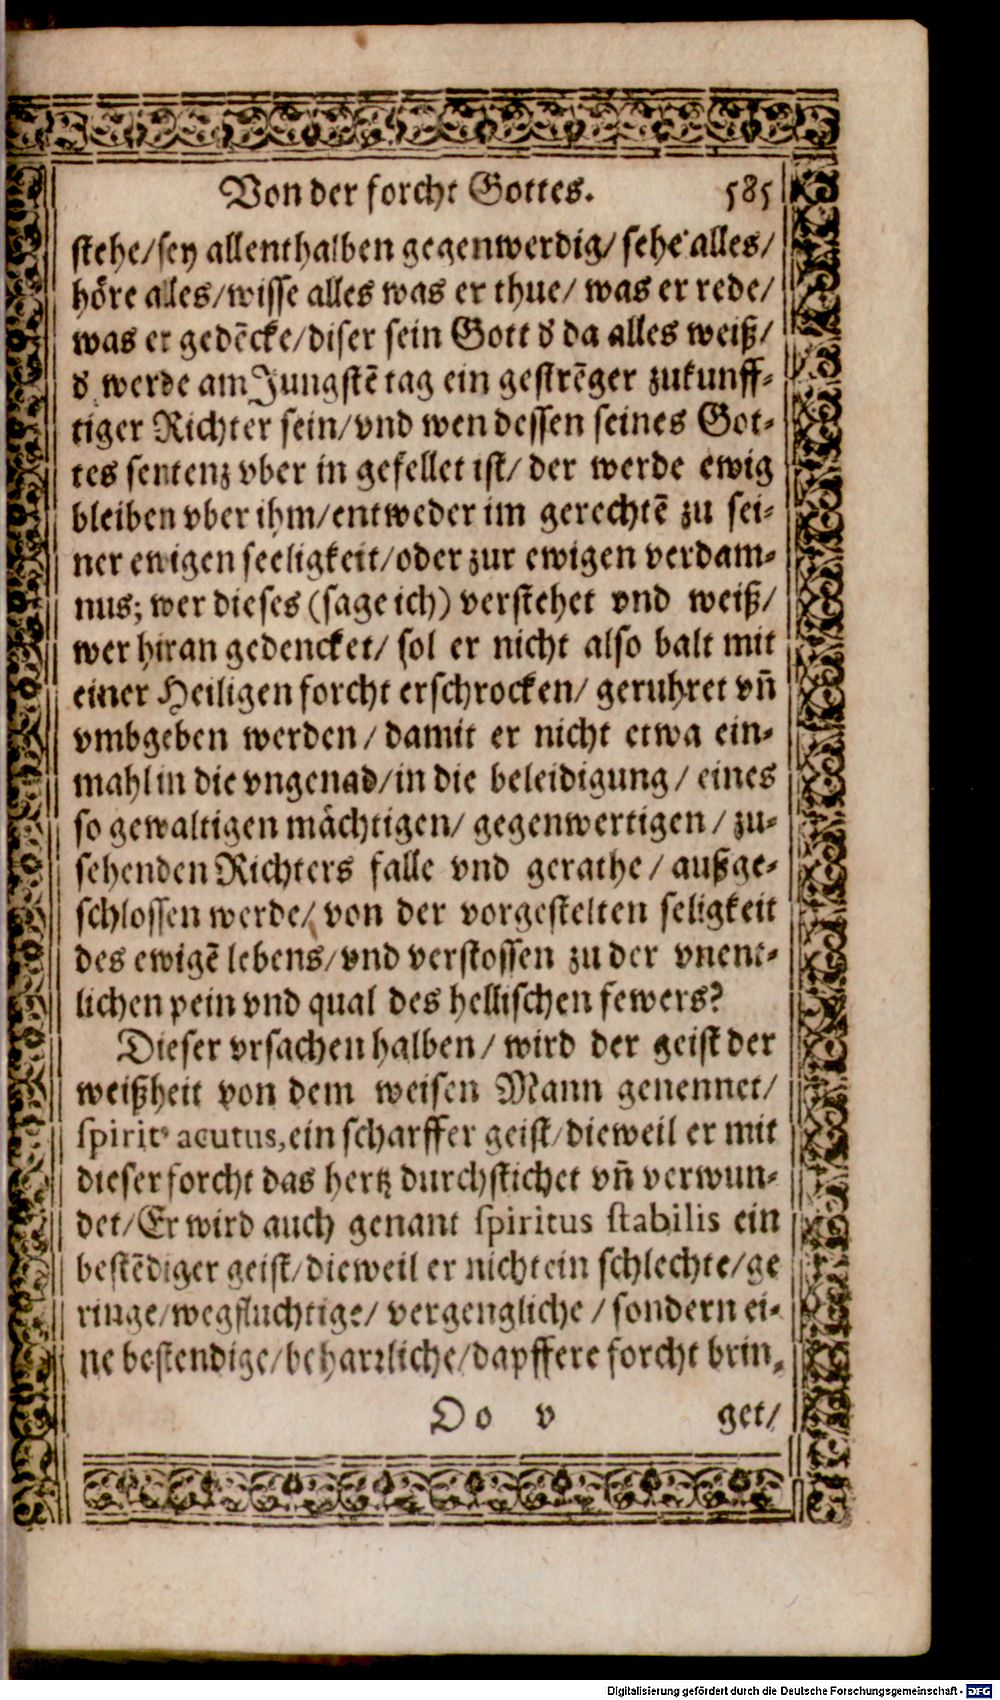 Von der forcht Gottes. 585
stehe/sey allenthalben gegenwerdig/ sehe alles/
höre alles/wisse alles was er thue/ was er rede/
was er gedẽcke/diser sein Gott d da alles weiß/
d werde am Jungstẽ tag ein gestrẽger zukunff-
tiger Richter sein/vnd wen dessen seines Got-
tes sentenz vber in gefellet ist/ der werde ewig
bleiben vber ihm/entweder im gerechtẽ zu sei-
ner ewigen seeligkeit/oder zur ewigen verdam-
nus; wer dieses (sage ich) verstehet vnd weiß/
wer hiran gedencket/ sol er nicht also balt mit
einer Heiligen forcht erschrocken/ geruhret vñ
vmbgeben werden/ damit er nicht etwa ein-
mahl in die vngenad/in die beleidigung/ eines
so gewaltigen mächtigen/ gegenwertigen/ zu-
sehenden Richters falle vnd gerathe/ außge-
schlossen werde/ von der vorgestelten seligkeit
des ewigẽ lebens/vnd verstossen zu der vnent-
lichen pein vnd qual des hellischen fewers?
Dieser vrsachen halben/ wird der geist der
weißheit von dem weisen Mann genennet/
spiritꝰ acutus, ein scharffer geist/dieweil er mit
dieser forcht das hertz durchstichet vñ verwun-
det/Er wird auch genant spiritus stabilis ein
bestẽdiger geist/dieweil er nicht ein schlechte/ge
ringe/wegfluchtige/ vergengliche/ sondern ei-
ne bestendige/beharrliche/dapffere forcht brin-
Oo v get/
Digitalisierung gefördert durch die Deutsche Forschungsgemeinschaft - DFG